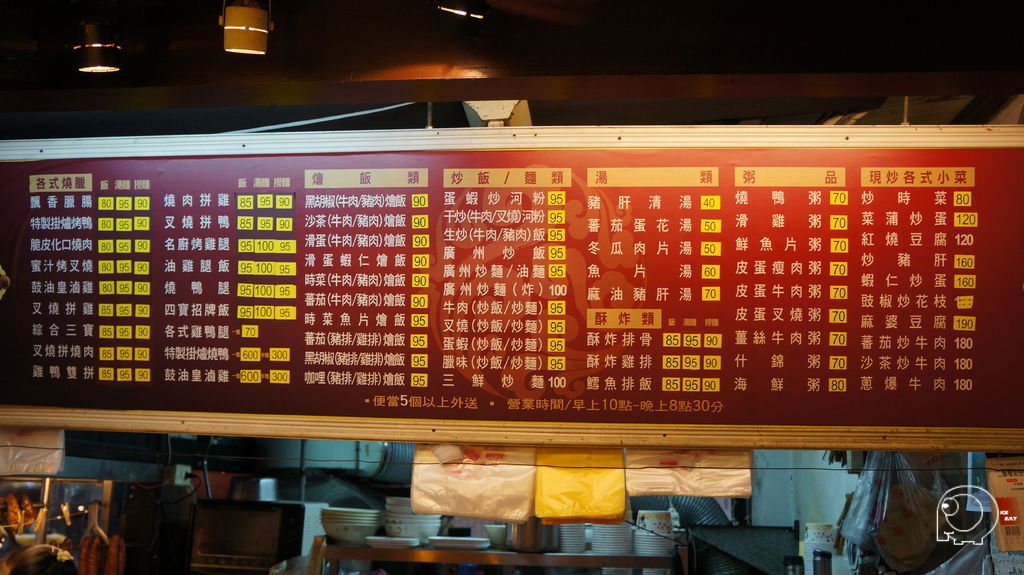 各式燒臘 飯 湯麵 撈麵
飄香臘腸 80 95 90
特製掛爐烤鴨 80 95 90
脆皮化口燒肉 80 95 90
蜜汁烤叉燒 80 95 90
鼓油皇滷雞 80 95 90
叉燒拼鴨 85 95 90
綜合三寶 85 95 90
叉燒拼燒肉 85 95 90
雞鴨雙拼 85 95 90
飯 湯麵 撈麵
燒肉拼雞 85 95 90
叉燒拼鴨 85 95 90
名廚烤雞腿 95 100 95
油雞腿飯 95 100 95
燒鴨腿 95 100 95
四寶招牌飯 95 100 95
各式雞鴨腿 一隻 70
特製掛爐燒鴨 一隻 600 半隻 300
鼓油皇滷雞 一隻 600 半隻 300
燴飯類
黑胡椒(牛肉/豬肉)燴飯 90
沙茶(牛肉/豬肉)燴飯 90
滑蛋(牛肉/豬肉)燴飯 90
滑蛋蝦仁燴飯 90
時菜(牛肉/豬肉)燴飯 90
蕃茄(牛肉/豬肉)燴飯 90
時菜魚片燴飯 90
蕃茄(豬排/雞排)燴飯 95
黑胡椒(豬排/雞排)燴飯 95
咖哩(豬排/雞排)燴飯 95
炒飯/麵類
蛋蝦炒河粉 95
干炒(牛肉/叉燒)河粉 95
生炒(牛肉/豬肉)飯 95
廣州炒飯 95
廣州炒麵/油麵 95
廣州炒麵(炸) 100
牛肉(炒飯/炒麵) 95
叉燒(炒飯/炒麵) 95
蛋蝦(炒飯/炒麵) 95
臘味(炒飯/炒麵) 95
三鮮炒麵 100
湯類
豬肝清湯 40
蕃茄蛋花湯 50
冬瓜肉片湯 50
魚片湯 60
麻油豬肝湯 70
酥炸類 飯 湯麵 撈麵
酥炸排骨 85 95 90
酥炸雞排 85 95 90
鱈魚排飯 85 95 90
粥品
燒鴨粥 70
滑雞粥 70
鮮魚片粥 70
皮蛋瘦肉粥 70
皮蛋牛肉粥 70
皮蛋叉燒粥 70
薑絲牛肉粥 70
什錦粥 70
海鮮粥 80
現炒各式小菜
炒時菜 80
菜蒲炒蛋 120
紅燒豆腐 120
炒豬肝 160
蝦仁炒蛋 160
豉椒炒花枝
麻婆豆腐 190
蕃茄炒牛肉 180
沙茶炒牛肉 180
蔥爆牛肉 180
▪便當5個以上外送 ▪ 營業時間/早上10點-晚上8點30分